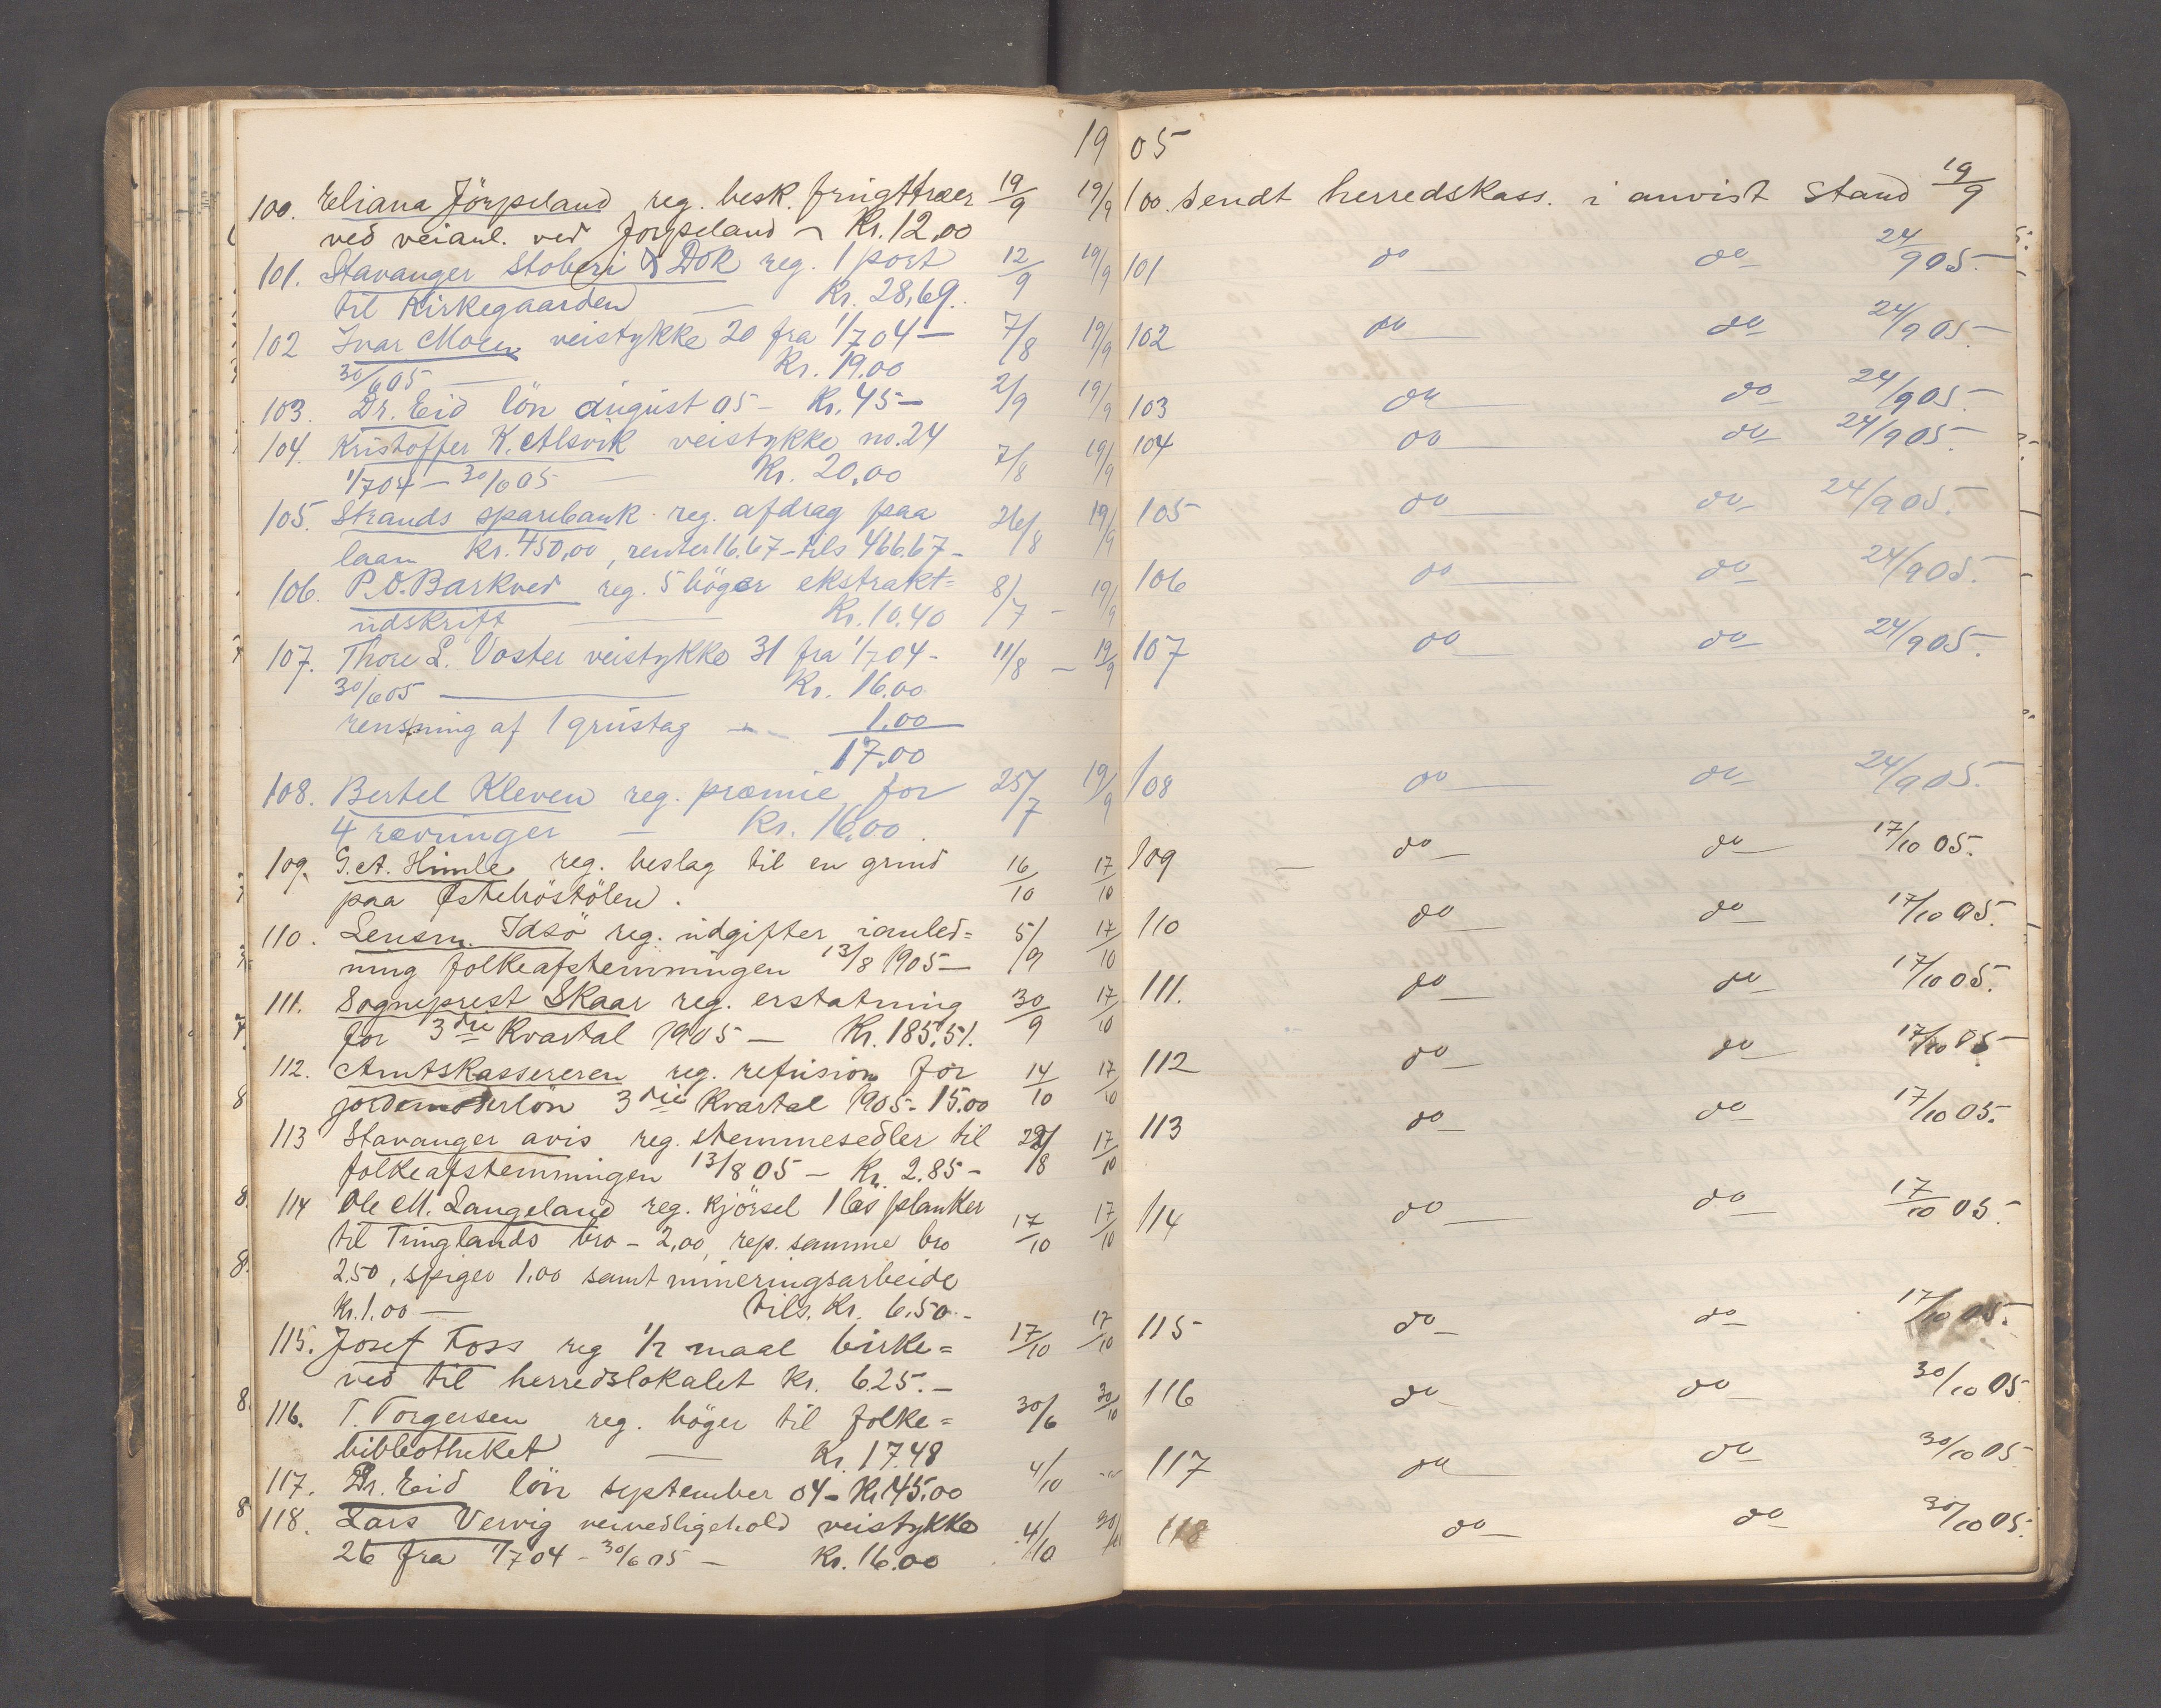 1905
100. Eliana Jörpeland reg. besk. frugttræer 19/9 19/9
ved veianl. ved Jørpeland – Kr. 12,00
101. Stavanger Stoberi & Dok reg. 1 port 12/9 19/9
til Kirkegaarden — Kr. 28,69.
102 Ivar Moen veistykke 20 fra 1/7 04 – 7/8 19/9
30/6 05 — Kr. 19.00
103. Dr. Eid lön august 05 – Kr. 45 – 2/9 19/9
104. Kristoffer K. Alsvik veistykke no. 24
1/7 04 – 30/6 05 — Kr. 20,00 7/8 19/9
105. Strands sparebank reg. afdrag paa 26/8 19/9
laan Kr. 450,00, renter 16.67 – tils 466.67 –
106. P.O. Barkved reg. 5 böger ekstrakt= 8/7 – 19/9
udskrift — Kr. 10.40
107. Thore L. Voster veistykke 31 fra 1/7 04 – 11/8 – 19/9
30/6 05 — Kr. 16.00
rensning af 1 grustag – – 1.00
17.00
108. Bertel Kleven reg. præmie for 25/7 19/9
4 rævunger — Kr. 16,00.
109. G.A. Himle reg. beslag til en grind 16/10 17/10
paa
110. Lensm. Idsö reg. udgifter ianled= 5/9 17/10
ning folkeafstemningen 13/8 1905 –
111. Sogneprest Skaar reg. erstatning 30/9 17/10
for 3die Kvartal 1905 – Kr. 185,51.
112. Amtskassereren reg. refusion for 14/10 17/10
jordemoderlön 3die Kvartal 1905 – 15.00
113 Stavanger avis reg. stemmesedler til 22/8 17/10
folkeafstemningen 13/8 05 – Kr. 2.85 –
114 Ole M. Langeland reg. kjörsel 1 læs planker
til Tunglands bro – 2,00, rep. samme bro 17/10 17/10
2.50, spiger 1.00 samt mineringsarbeide
Kr. 1.00 – tils. Kr. 6.50 –
115. Josef Foss reg 1/2 maal birke= 17/10 17/10
ved til herredslokalet Kr. 6.25. –
116. T. Torgersen reg. böger til folke= 30/6 30/10
bibliotheket — Kr. 17.48
117. Dr. Eid lön september 04 – Kr. 45.00 4/10 –"–
118. Lars Vervig veivedligehold veistykke 4/10 30/10
26 fra 1/7 04 – 30/6 05 – Kr. 16.00
100. Sendt herredskass. i anvist stand 19/9
101 do do 24/9 05.
102 do do 24/9 05.
103 do do 24/9 05.
104 do do 24/9 05.
105 do do 24/9 05.
106 do do 24/9 05.
107 do do 24/9 05.
108 do do 24/9 05.
109 – do do 17/10 05.
110 do do 17/10 05.
111. do do 17/10 05.
112 do do 17/10 05
113 do do 17/10 05.
114 do do 17/10 05.
115 do do 17/10 05.
116 do do 30/10 05
117 do do 30/10 05
118 do do 30/10 05.